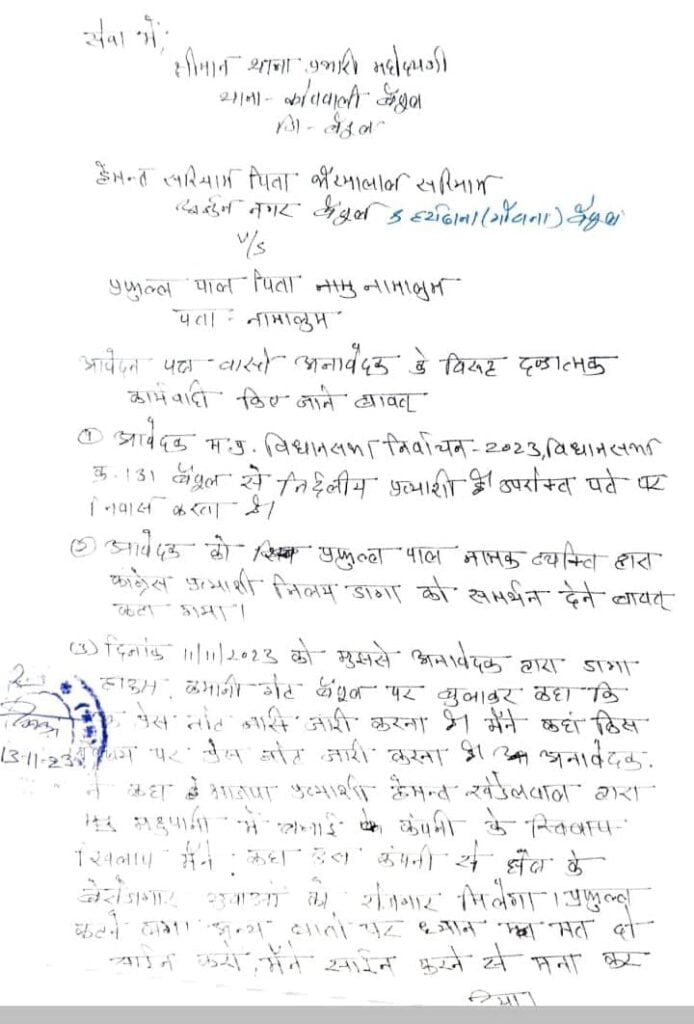 सेवा में,
श्रीमान थाना प्रभारी महोदयजी
थाना - कोतवाली बैतूल
जि - बैतूल
हेमन्त सरियाम पिता सरियाम
अर्जुन नगर बैतूल (गौठाना) बैतूल
V/S
प्रफुल्ल पाल पिता नामु नामालुम
पता : नामालुम
आवेदन पत्र वास्ते अनावेदक के विरूद्ध दण्डात्मक
कार्यवाही किए जाने बावत्
① आवेदक म.प्र. विधानसभा निर्वाचन - 2023, विधानसभा
क्र. 131 बैतूल से निर्दलीय प्रत्याशी है उपरोक्त पते पर
निवास करता है।
② आवेदक को प्रफुल्ल पाल नामक व्यक्ति द्वारा
कांग्रेस प्रत्याशी निलय डागा को समर्थन देने बावत्
कहा गया।
(3) दिनांक 11/11/2023 को मुझसे अनावेदक द्वारा डागा
हाउस, कमानी गेट बैतूल पर बुलाकर कहा कि
प्रेस नोट जारी करना है। मैंने कहां किस
पर प्रेस नोट जारी करना है। अनावेदक
ने कहा है भाजपा प्रत्याशी हेमन्त खंडेलवाल द्वारा
में कंपनी के खिलाप
खिलाप मैंने कहा इस कंपनी से क्षेत्र के
बेरोजगार युवाओं को रोजगार मिलेगा। प्रफुल्ल
कहने लगा अन्य बातो पर ध्यान मत दो
साईन करो, मैंने साईन करने से मना कर
दिया।
13-11-23